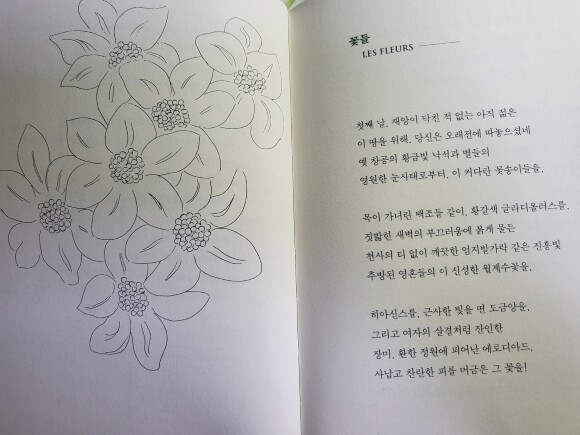 꽃들
LES FLEURS
첫째 날, 재앙이 닥친 적 없는 아직 젊은
이 땅을 위해, 당신은 오래전에 따놓으셨네
옛 창공의 황금빛 낙석과 별들의
영원한 눈사태로부터, 이 커다란 꽃송이들을,
목이 가녀린 백조들 같이, 황갈색 글라디올러스를,
짓밟힌 새벽의 부끄러움에 붉게 물든
천사의 티 없이 깨끗한 엄지발가락 같은 진홍빛
추방된 영혼들의 이 신성한 월계수꽃을,
히아신스를, 근사한 빛을 띤 도금양을,
그리고 여자의 살결처럼 잔인한
장미, 환한 정원에 피어난 에로디아드,
사납고 찬란한 피를 머금은 그 꽃을!